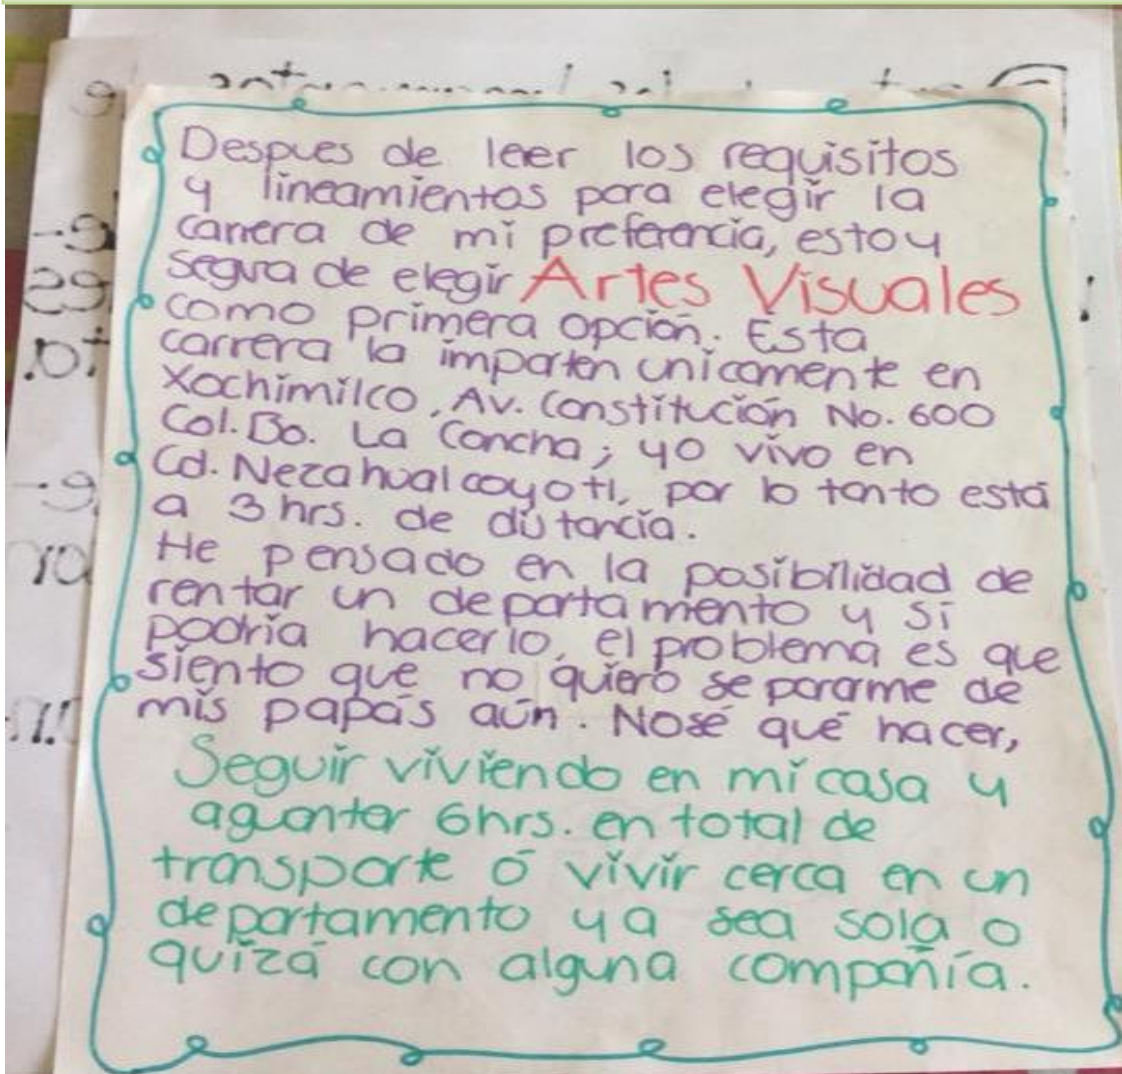 Despues de leer los requisitos
y lineamientos para elegir la
carrera de mi preferencia, estoy
segura de elegir Artes Visuales
como primera opción. Esta
carrera la imparten unicamente en
Xochimilco, Av. Constitución No. 600
Col. Bo. La Concha; yo vivo en
Cd. Nezahualcoyotl, por lo tanto está
a 3 hrs. de distancia.
He pensado en la posibilidad de
rentar un departamento y si
podría hacerlo, el problema es que
siento que no quiero separarme de
mis papás aún. Nosé qué hacer,
Seguir viviendo en mi casa y
aguantar 6hrs. en total de
transporte ó vivir cerca en un
departamento ya sea sola o
quizá con alguna compañía.